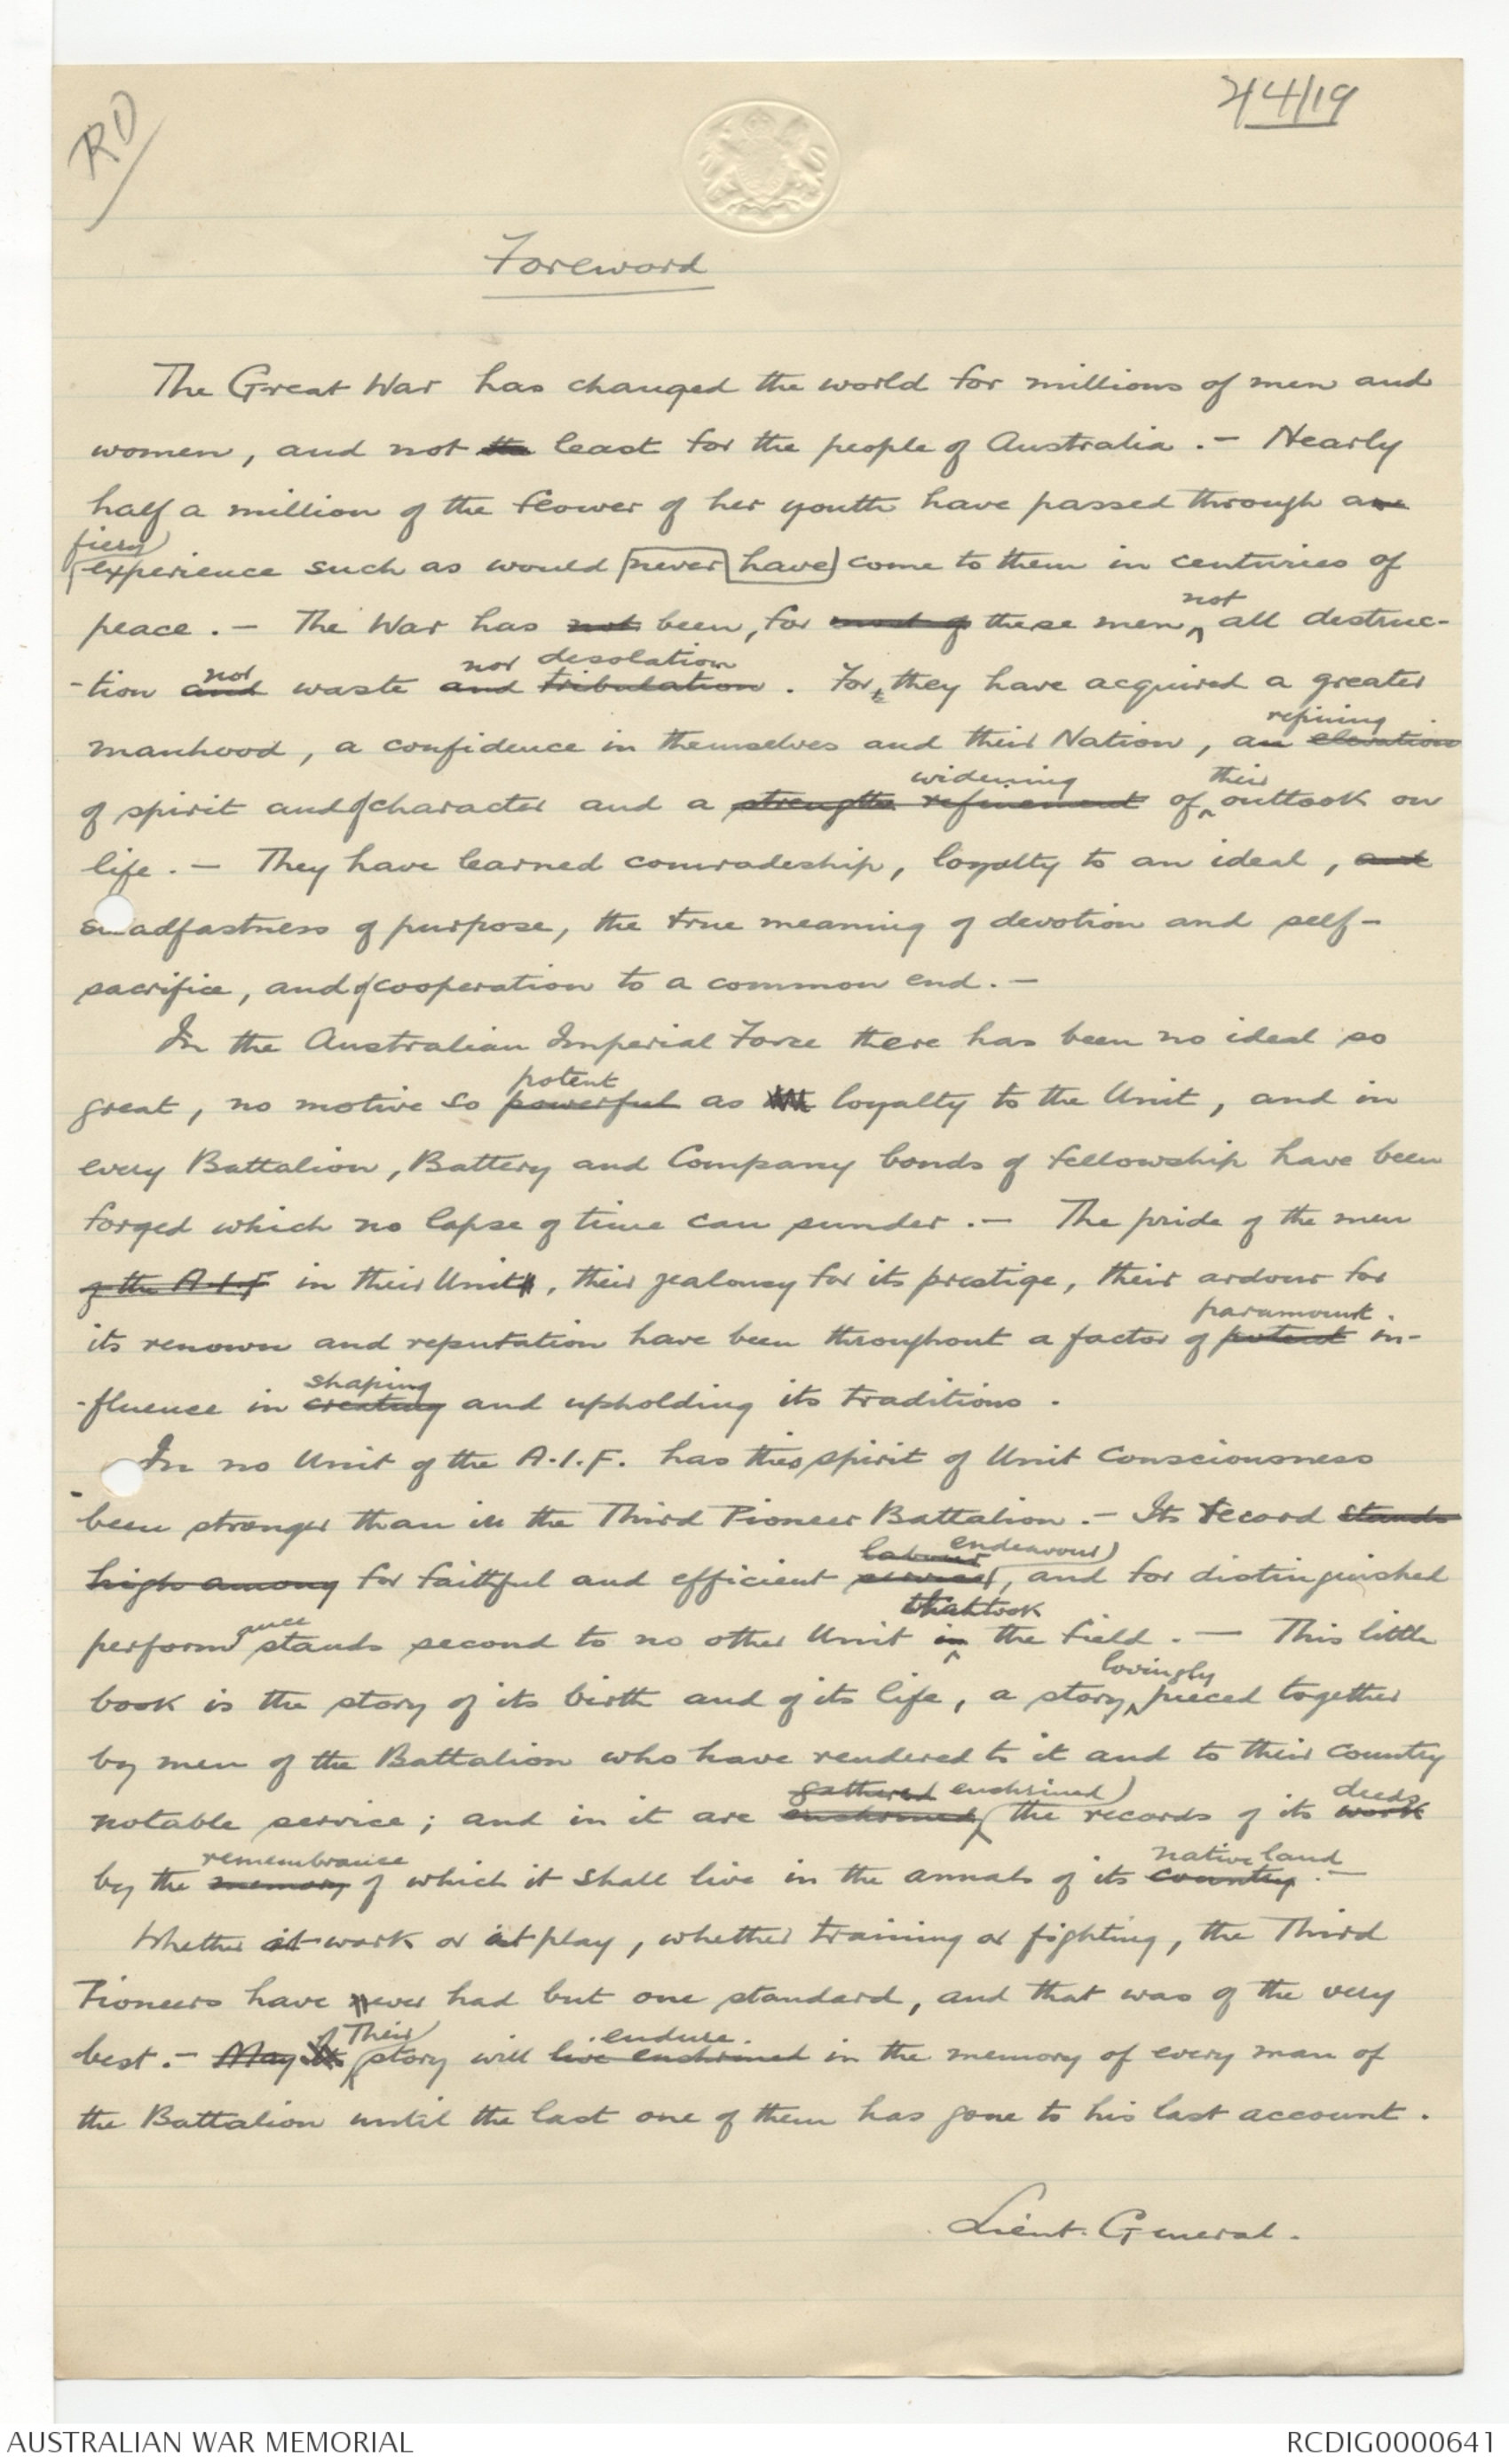 RD
2/4/19
Foreword
The Great War has changed the world for millions of men and
women, and not the least for the people of Australia. - Nearly
half a million of the flower of her youth have passed through an
fiery
experience such as would never have come to them in centuries of
not
peace. - The War has not been, for most of these men, all destruc-
nor nor desolation
-tion and waste and tribulation. For, they have acquired a greater
refining
manhood, a confidence in themselves and their Nation, an elevation
widening their
of spirit and of character and a strength refinement of outlook on
life. - They have learned comradeship, loyalty to an ideal, and
steadfastness of purpose, the true meaning of devotion and self-
sacrifice, and of cooperation to a common end. -
In the Australian Imperial Force there has been no ideal so
potent
great, no motive so powerful as loyalty to the Unit, and in
every Battalion, Battery and Company bonds of fellowship have been
forged which no lapse of time can sunder. - The pride of the men
of the A.I.F in their Unit, their jealousy for its prestige, their ardour for
paramount
its renown and reputation have been throughout a factor of potent in-
shaping
-fluence in creating and upholding its traditions.
In no Unit of the A.I.F. has this spirit of Unit Consciousness
been stronger than in the Third Pioneer Battalion. - Its record stands
labour endeavour
high among for faithful and efficient service, and for distinguished
ance that took
perform stands second to no other Unit in the field. - This little
lovingly
book is the story of its birth and of its life, a story pieced together
by men of the Battalion who have rendered to it and to their country
gathered enshrined deeds
notable service; and in it are enshrined the records of its work
remembrance native land
by the memory of which it shall live in the annals of its country. -
Whether at work or at play, whether training or fighting, the Third
Pioneers have ever had but one standard, and that was of the very
Their endure.
best. - May its story will live enshrined in the memory of every man of
the Battalion until the last one of them has gone to his last account.
Lieut. General.
AUSTRALIAN WAR MEMORIAL
RCDIG0000641